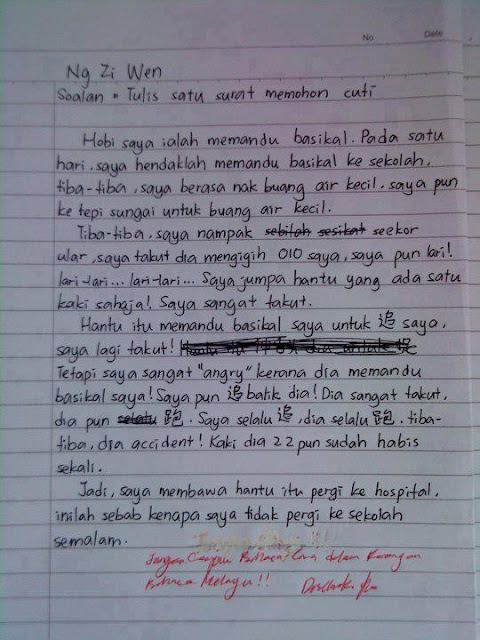 No
Date
Ng Zi Wen
Soalan = Tulis satu surat memohon cuti
Hobi saya ialah memandu basikal. Pada satu
hari, saya hendaklah memandu basikal ke sekolah,
tiba-tiba, saya berasa nak buang air kecil, saya pun
ke tepi sungai untuk buang air kecil.
Tiba-tiba, saya nampak sebilah sesikat seekor
ular, saya takut dia mengigih 010 saya, saya pun lari!
lari-lari... lari-lari... Saya jumpa hantu yang ada satu
kaki sahaja! Saya sangat takut.
Hantu itu memandu basikal saya untuk 追 saya,
saya lagi takut!
Tetapi saya sangat "angry" kerana dia memandu
basikal saya! Saya pun 追 balik dia! Dia sangat takut,
dia pun selalu 跑. Saya selalu 追, dia selalu 跑. tiba-
tiba, dia accident! Kaki dia 22 pun sudah habis
sekali.
Jadi, saya membawa hantu itu pergi ke hospital,
inilah sebab kenapa saya tidak pergi ke sekolah
semalam.
Jangan Campur Bahasa Cina dalam Karangan
Bahasa Melayu!!